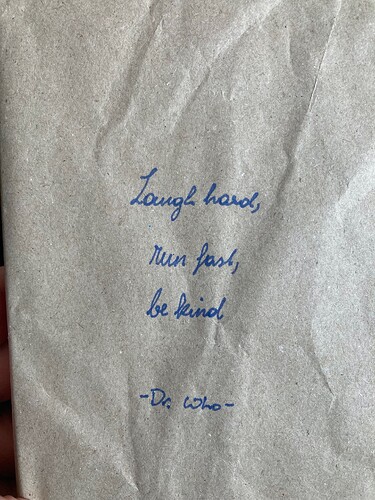 Laugh hard,
run fast,
be kind
-Dr. Who-